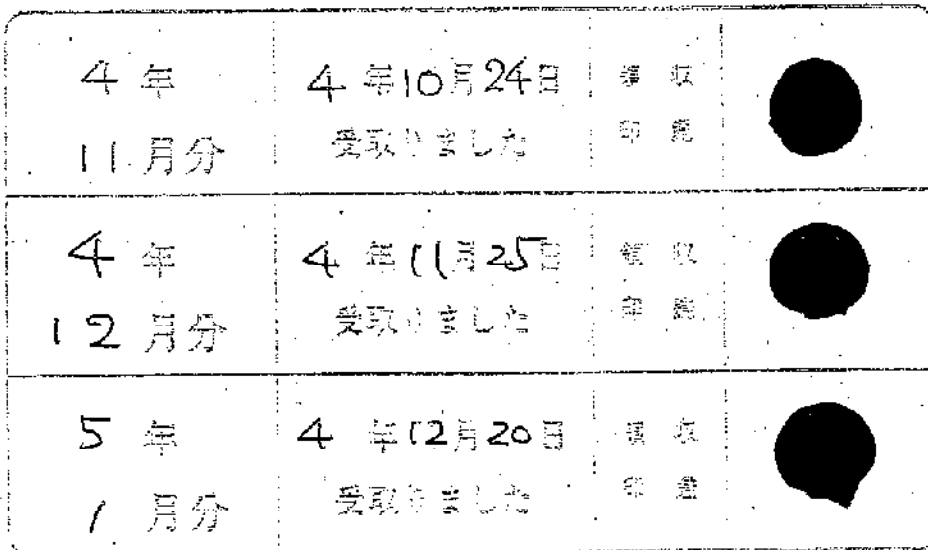 4年
11月分
4年10月24日
受取りました
領収
印鑑
4年
12月分
4年11月25日
受取りました
領収
印鑑
5年
1月分
4年12月20日
受取りました
領収
印鑑